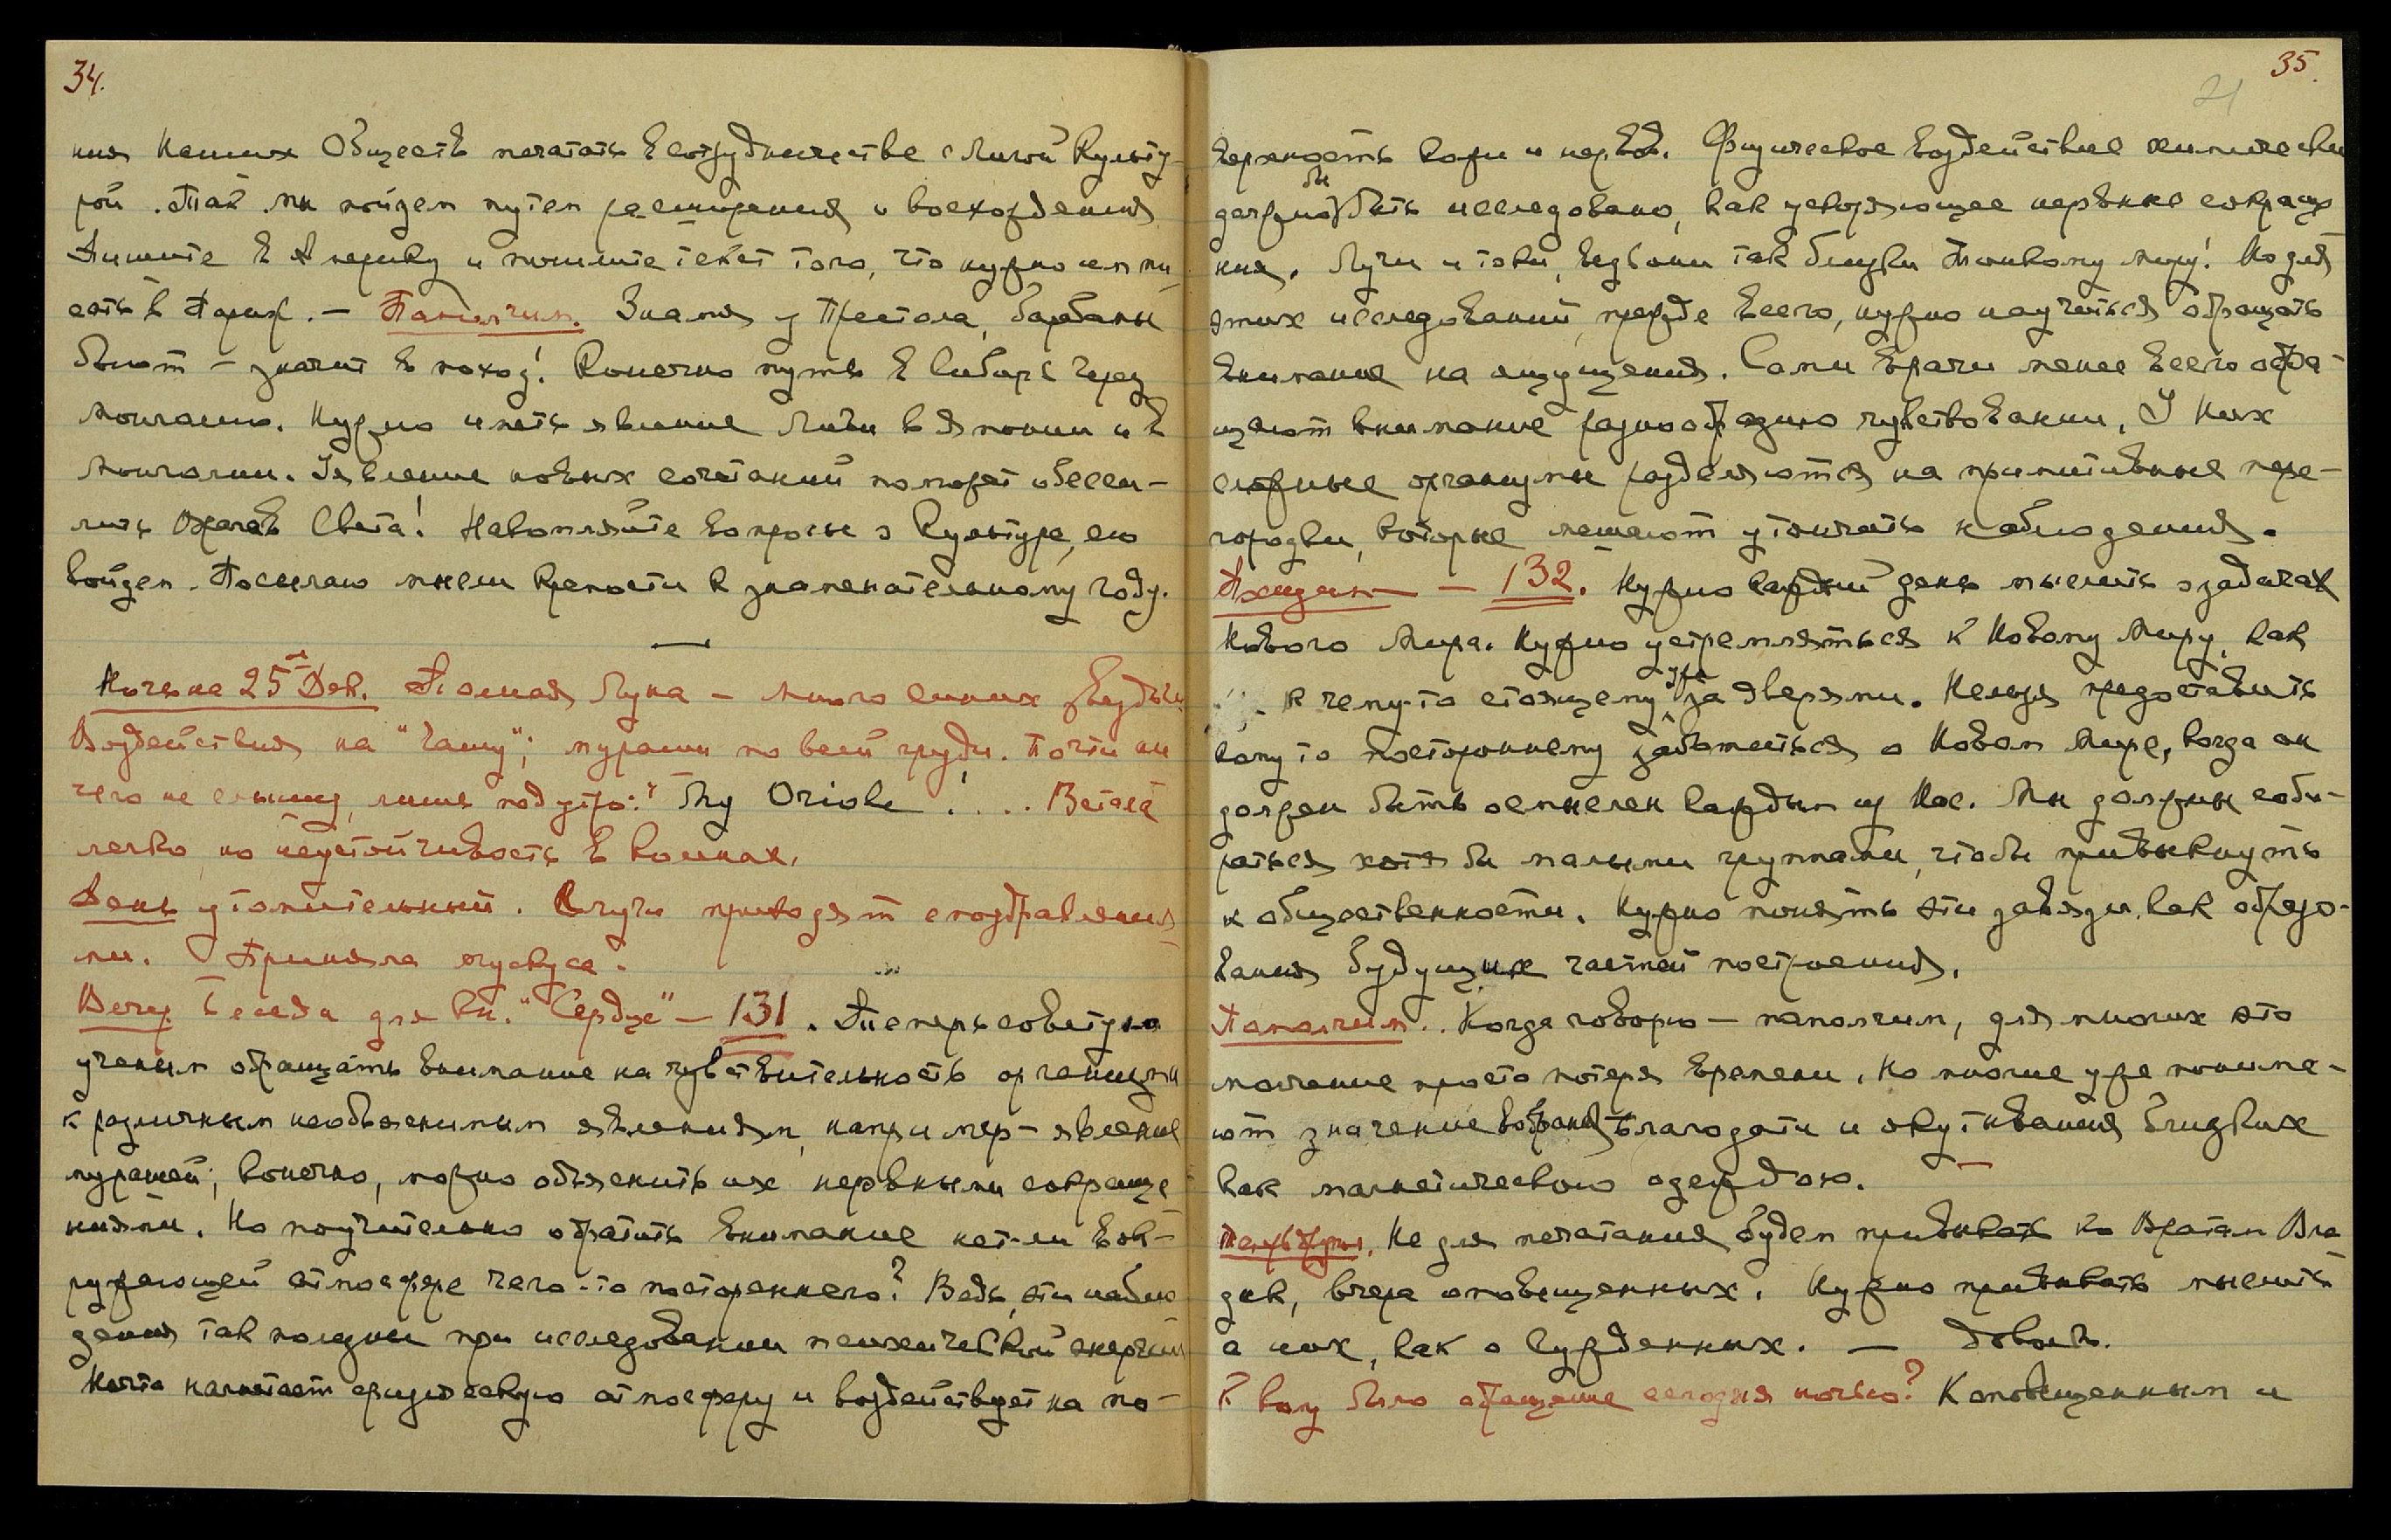 34.
ния Наших Обществ печатать в сотрудничестве с Лигой Культу-
рой. Так мы пойдем путем расширения и восхождения
Пишите в Америку и пошлите текст того, что нужно им пи-
сать в Париж. — Помолчим. Знамя у Престола, барабаны
бьют — значит в поход! Конечно путь в Сибирь через
Монголию. Нужно иметь явление Лиги в Японии и в
Монголии. Явление новых сочетаний поможет обесси-
лить Врагов Света! Накопляйте вопросы о Культуре, ею
войдем. Посылаю мысли крепости к знаменательному году.
Ночь на 25 Дек. Полная Луна — много синих звездочек
Воздействия на "Чашу"; мурашки по всей груди. Почти ни
чего не слышу, лишь под утро: "My Oriole!... Встала
легко, но неустойчивость в коленах.
День утомительный. Слуги приходят с поздравления-
ми. Приняла мускуса.
Вечер Беседа для кн. "Сердце" — 131. Теперь советую
ученым обращать внимание на чувствительность организма
к различным необъяснимым явлениям, например — явление
мурашей; конечно, можно объяснить их нервными сокраще
ниями. Но поучительно обратить внимание нет-ли в ок-
ружающей атмосфере чего-то постороннего? Ведь, эти наблю
дения так полезны при исследовании психической энергии
Нечто нагнетает физическую атмосферу и воздействует на по-
35.
21
верхность кожи и нервов. Физическое воздействие химически
должно бы быть исследовано, как ускоряющее нервные сокраще
ния. Лучи и токи, ведь они так близки Тонкому миру! Но для
этих исследований, прежде всего, нужно научиться обращать
внимание на ощущения. Сами врачи менее всего обра-
щают внимание разнообразию чувствований. У Них
сложные организмы разделяются на примитивные пере-
городки, которые мешают утончать наблюдения.
— 132. Нужно каждый день мыслить о задачах
Нового Мира. Нужно устремляться к Новому Миру, как
к чему-то стоящему уже за дверями. Нельзя предоставить
кому то постороннему заботиться о Новом Мире, когда он
должен быть осмыслен каждым из Нас. Мы должны соби-
раться хотя бы малыми группами, чтобы привыкнуть
к общественности. Нужно понять эти завязи, как образо-
вания будущих частей построения.
Помолчим.. Когда говорю — помолчим, для многих это
молчание просто потеря времени. Но многие уже понима-
ют значение вобрания благодати и окутывания близких
как магнетическою одеждою.
Не для печатания будем призывать ко Вратам Вла
дык, вчера оповещенных. Нужно привыкать мыслить
о них, как о сужденных. — Довольно.
К кому было обращение сегодня ночью? К оповещенным и